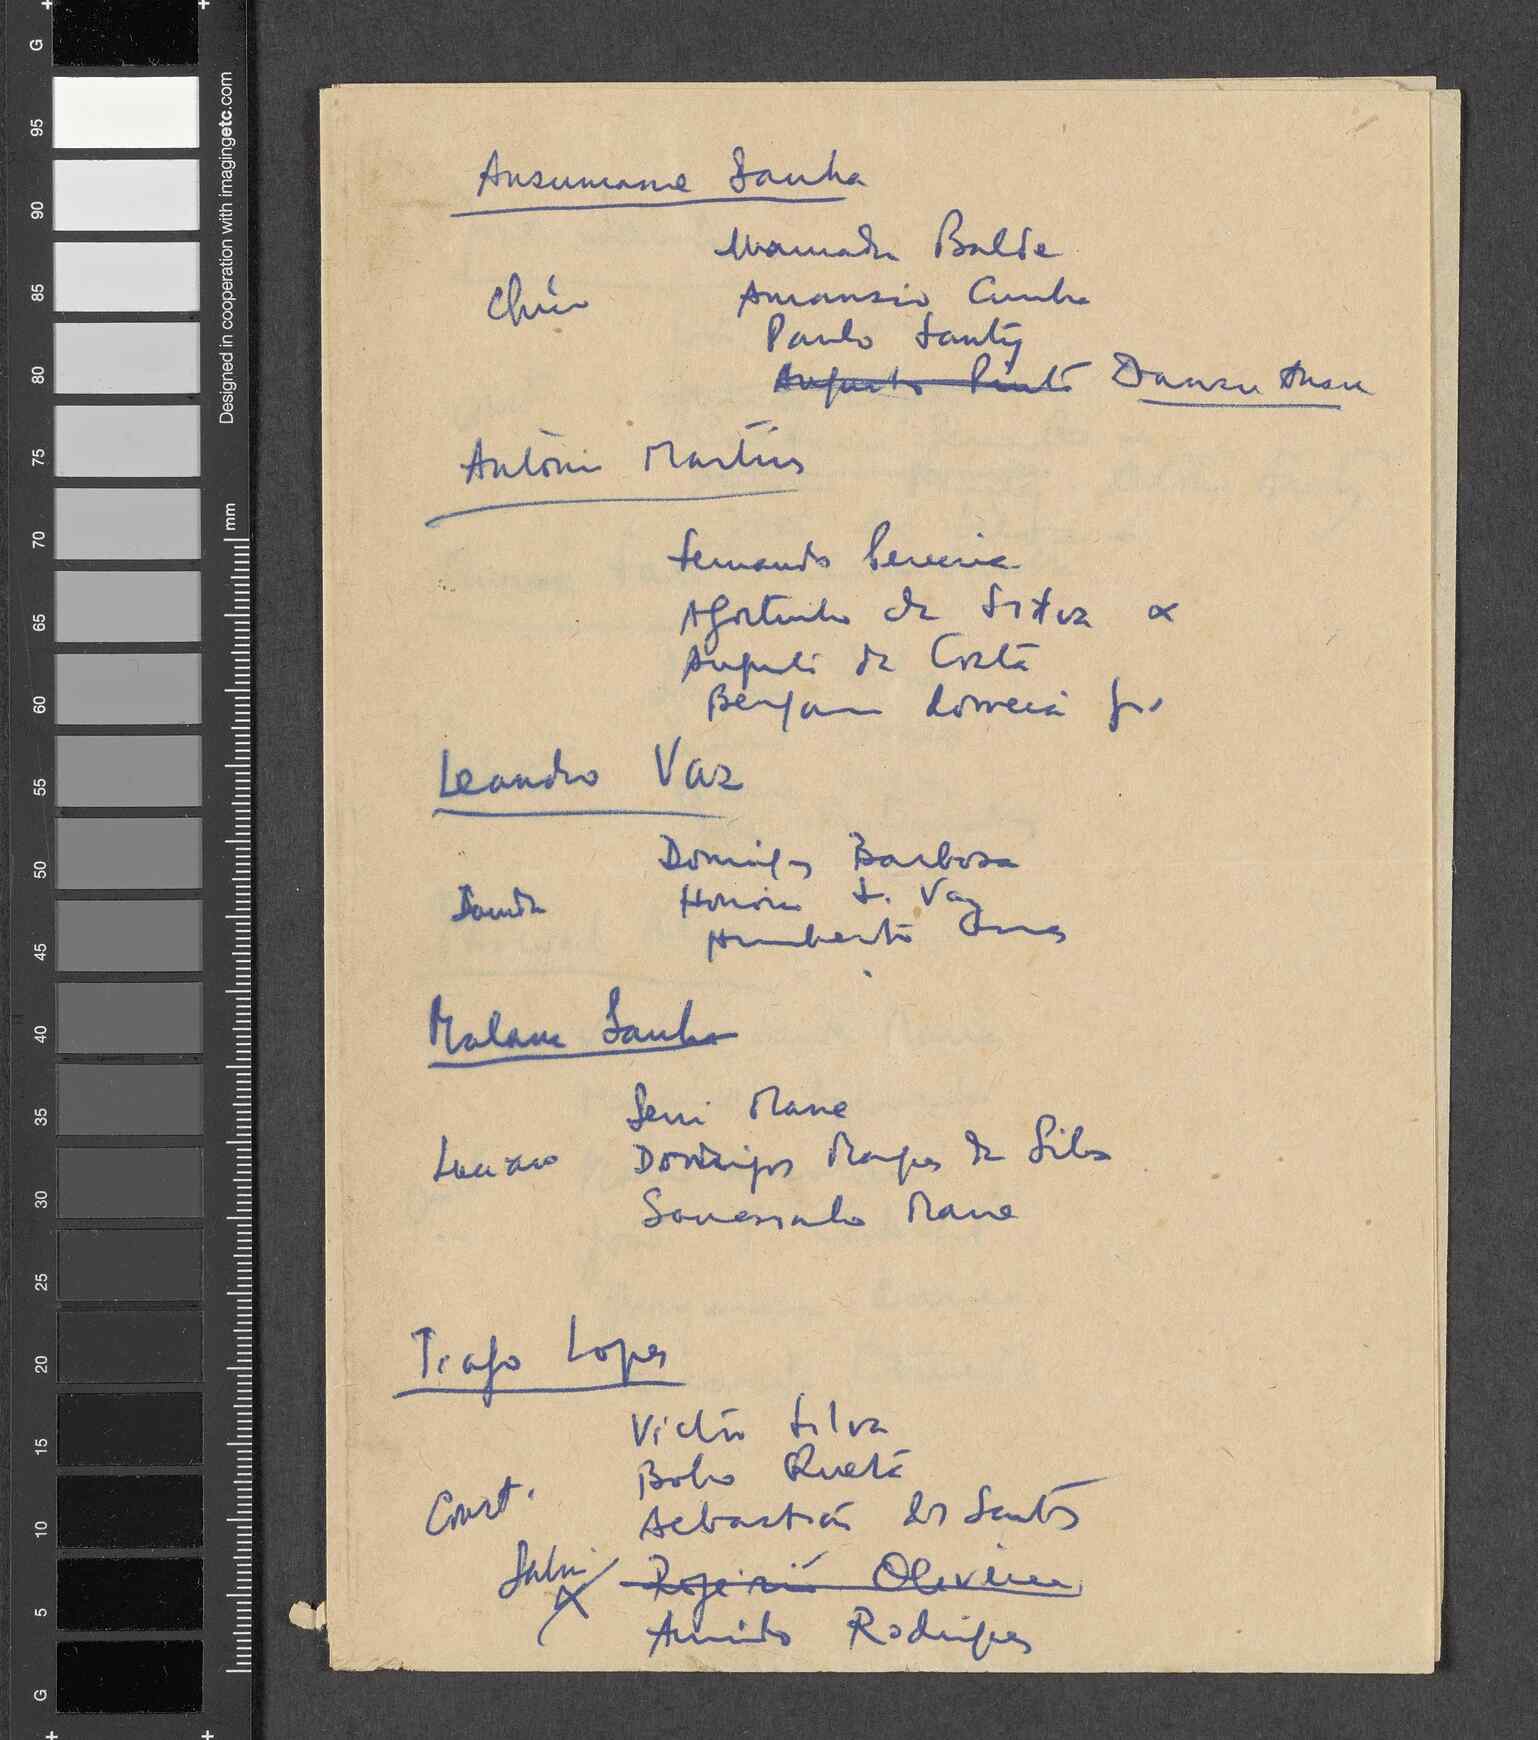 Ansumane Sanha
Mamadu Balde
Amansio Cunha
Paulo Santy
Augusto Pinto Dansu
António Martins
Fernando Pereira
Agostinho da Silva
Augusto da Costa
Benjam Correia Jr.
Leandro Vaz
Domingos Barbosa
Honório S. Vaz
Humberto
Malam Sanha
Seni Mane
Luciano Domingos da Silva
Mane
Tiago Lopes
Victor Silva
Bobo Queta
Const. Sebastião dos Santos
Rogério Oliveira
Armindo Rodrigues
G
95
90
85
80
75
70
65
60
55
50
45
40
35
30
25
20
15
10
5
G
Designed in cooperation with imagingetc.com
mm